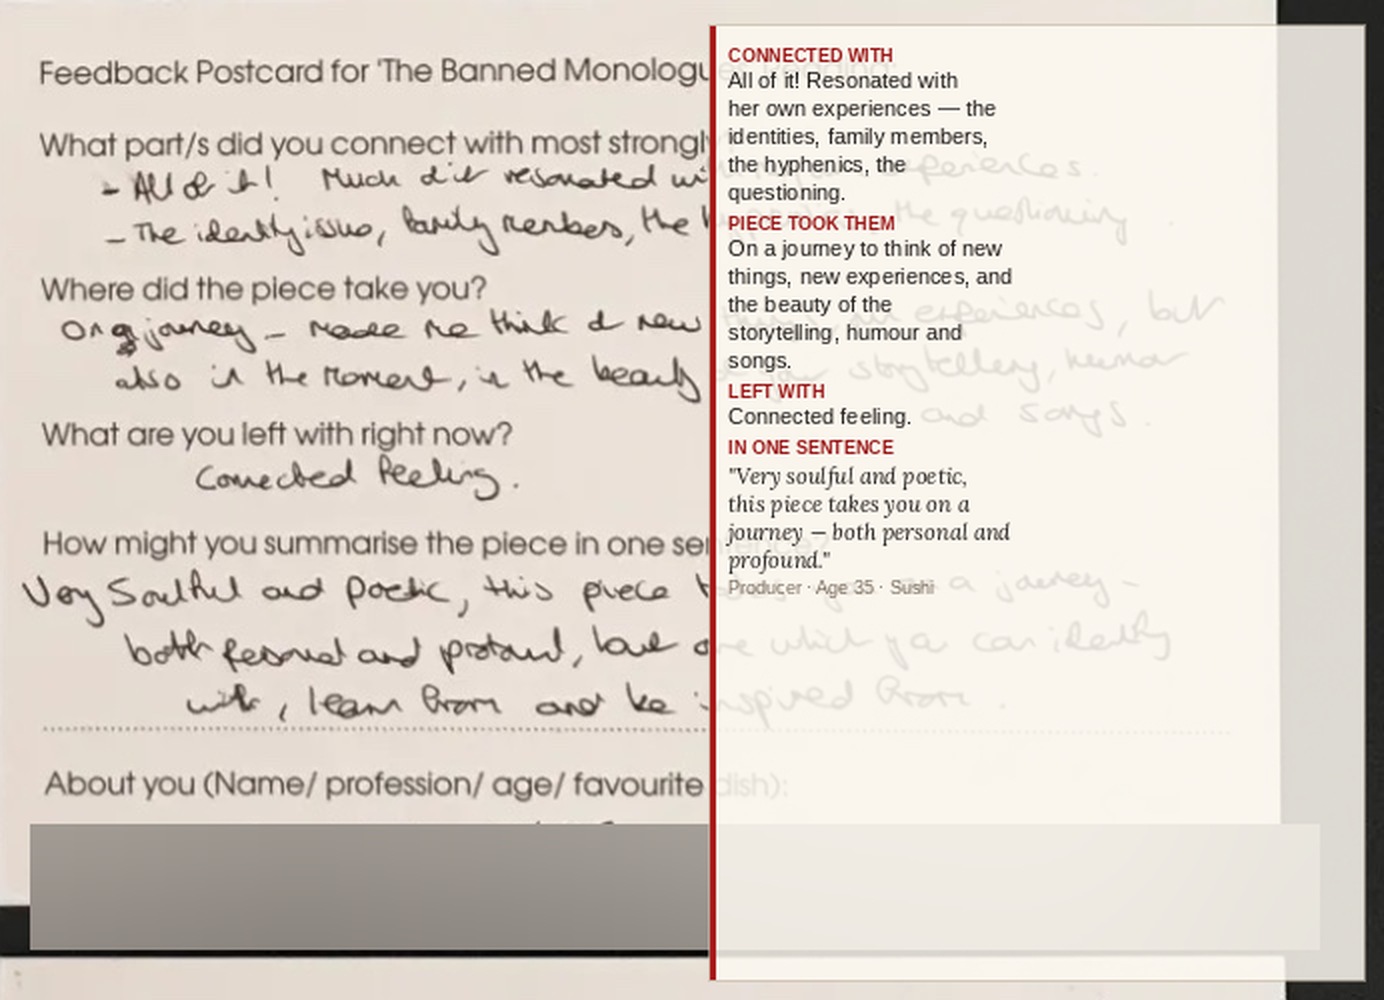 Feedback Postcard for 'The Banned Monologues Reading:
What part/s did you connect with most strongly
- All of it! Much of it resonated with my own experiences.
- The identity issues, family members, the hyphenics, the questioning.
Where did the piece take you?
On a journey - made me think of new things, new experiences, but
also in the moment, in the beauty of your storytelling, humour
and songs.
What are you left with right now?
Connected feeling.
How might you summarise the piece in one sentence?
Very Soulful and Poetic, this piece takes you on a journey -
both personal and profound, but one which you can identify
with, learn from and be inspired from.
About you (Name/ profession/ age/ favourite dish):
CONNECTED WITH
All of it! Resonated with
her own experiences — the
identities, family members,
the hyphenics, the
questioning.
PIECE TOOK THEM
On a journey to think of new
things, new experiences, and
the beauty of the
storytelling, humour and
songs.
LEFT WITH
Connected feeling.
IN ONE SENTENCE
"Very soulful and poetic,
this piece takes you on a
journey — both personal and
profound."
Producer · Age 35 · Sushi